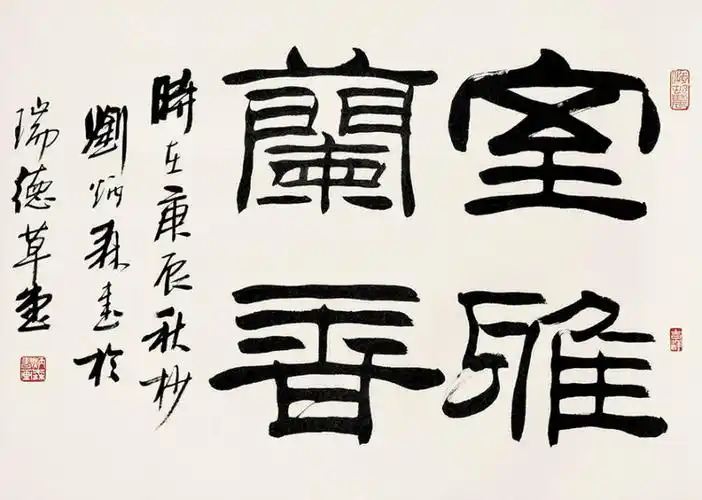 室雅
蘭香
時在庚辰秋杪
劉炳森書於
瑞德草堂